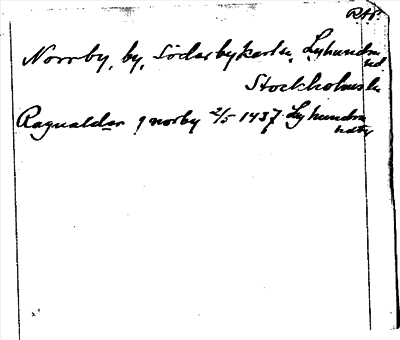 RAP.
Norrby, by, Söderbykarls, Lyhundra
hd
Stockholms län
Ragualdar j norby 2/5 1437 Lyhundra
hdby